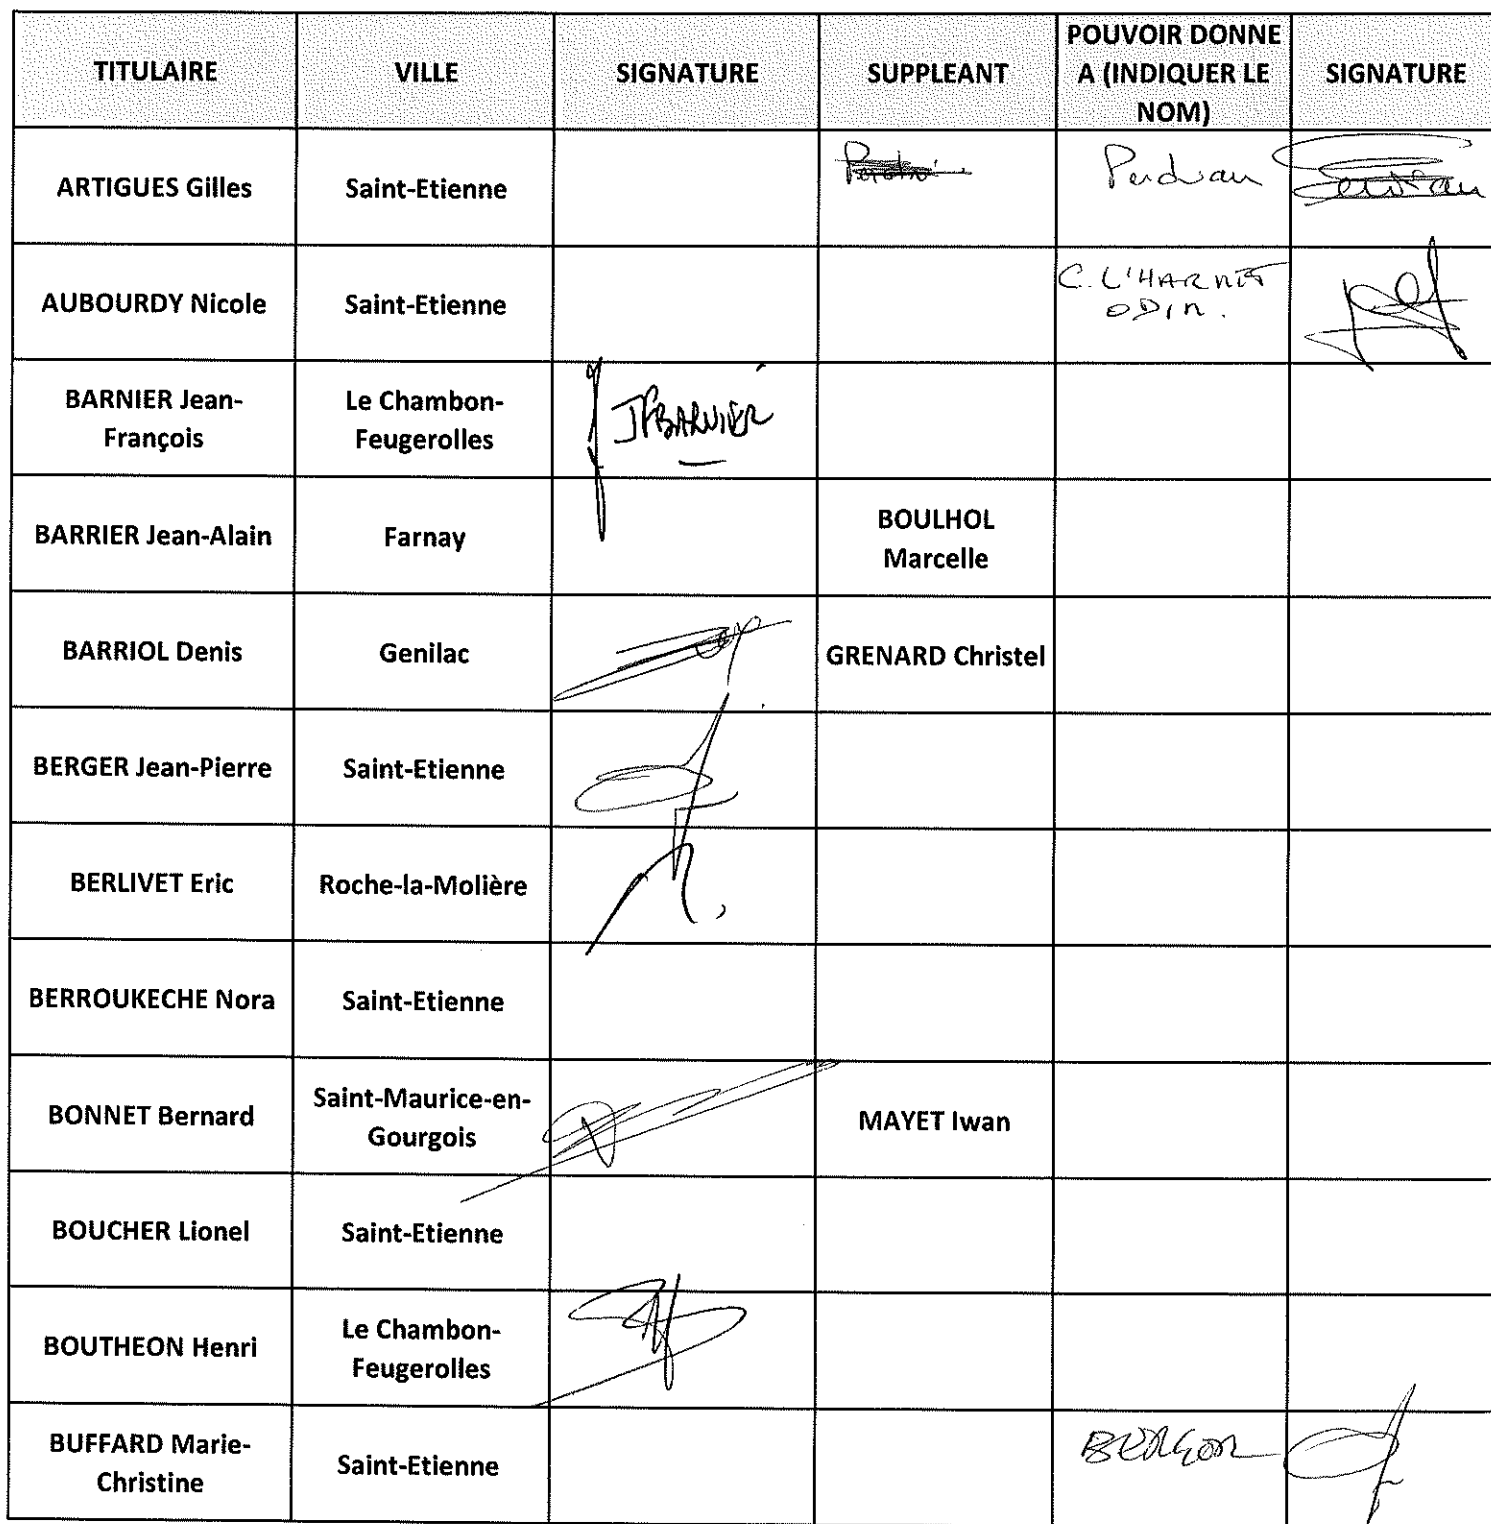 TITULAIRE VILLE SIGNATURE SUPPLEANT POUVOIR DONNE A (INDIQUER LE NOM) SIGNATURE
ARTIGUES Gilles Saint-Etienne Perdriau
AUBOURDY Nicole Saint-Etienne C. L'HARMET ODIN.
BARNIER Jean-François Le Chambon-Feugerolles JFBARNIER
BARRIER Jean-Alain Farnay BOULHOL Marcelle
BARRIOL Denis Genilac GRENARD Christel
BERGER Jean-Pierre Saint-Etienne
BERLIVET Eric Roche-la-Molière
BERROUKECHE Nora Saint-Etienne
BONNET Bernard Saint-Maurice-en-Gourgois MAYET Iwan
BOUCHER Lionel Saint-Etienne
BOUTHEON Henri Le Chambon-Feugerolles
BUFFARD Marie-Christine Saint-Etienne BERGER